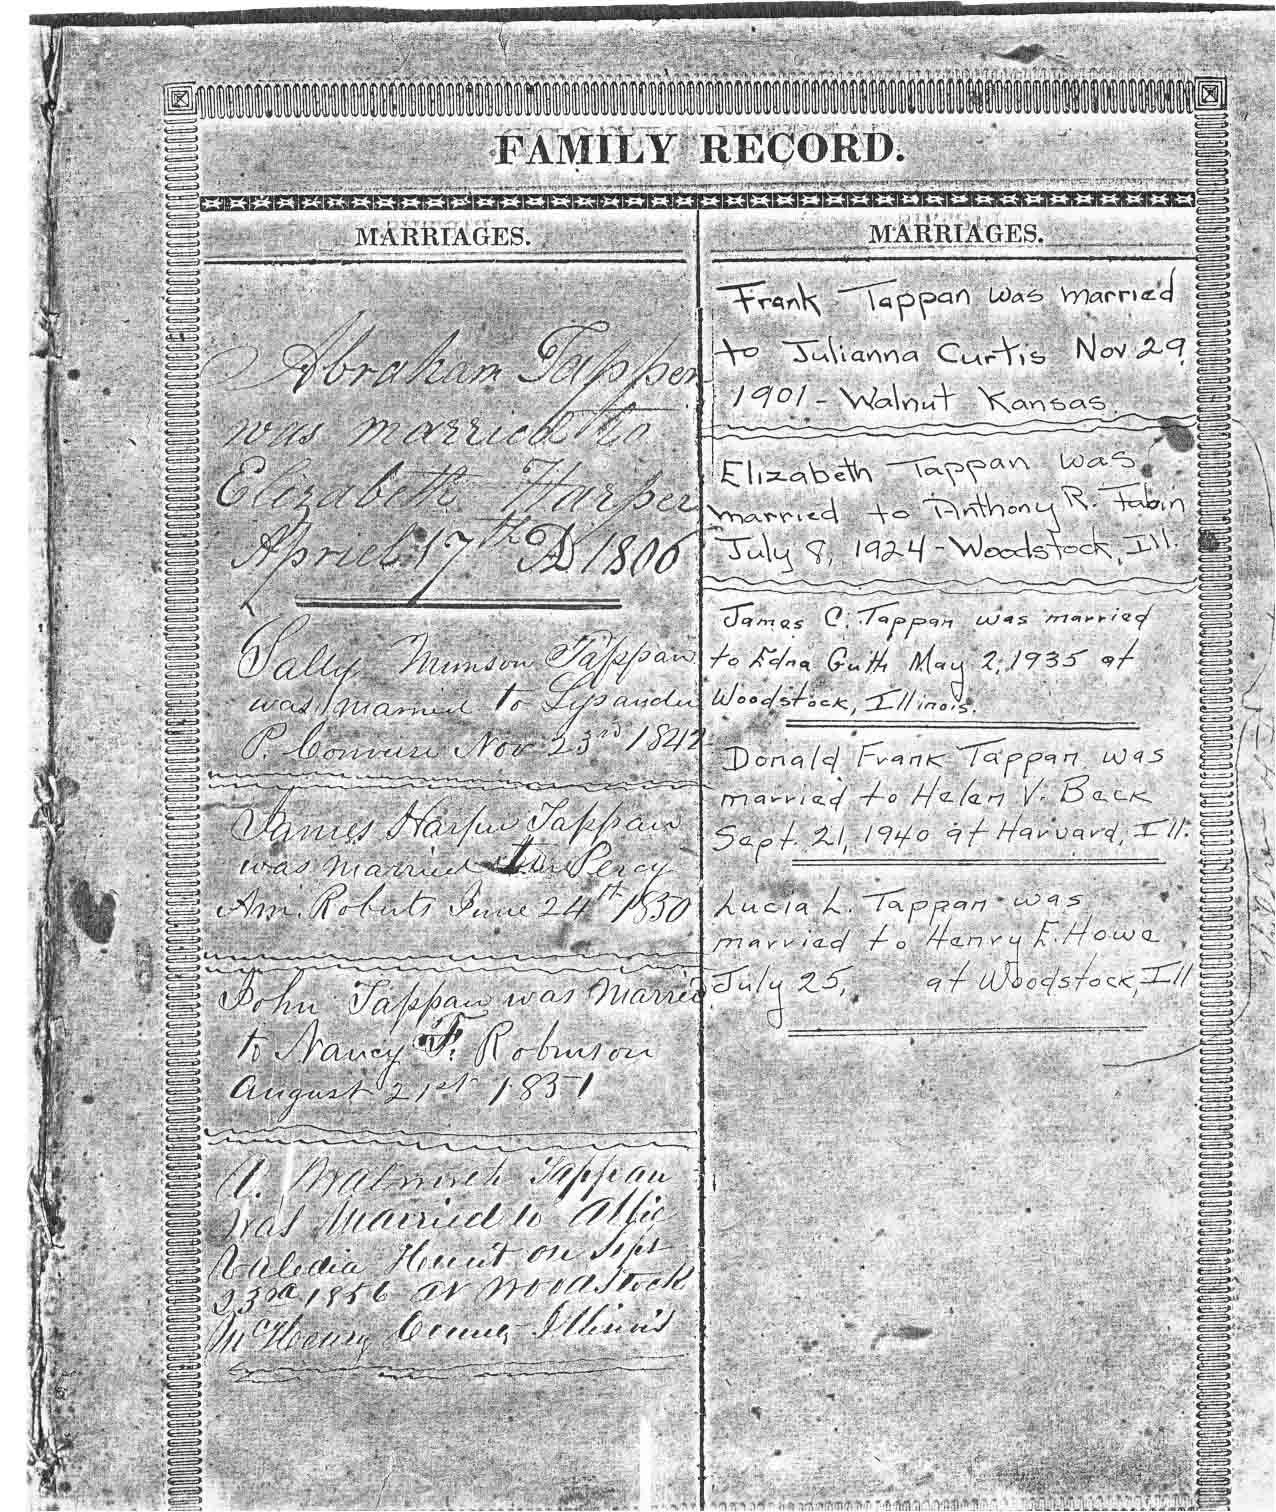 FAMILY RECORD.
MARRIAGES.
Abraham Tappen
was married to
Elizabeth Harper
Apriel 17th AD 1806
Sally Munson Tappan
was married to Lysander
P. Converse Nov 23rd 1842
James Harper Tappan
was married Percy
Am. Roberts June 24th 1850
John Tappan was Married
to Nancy F. Robinson
August 21st 1851
A. Walworth Tappan
was Married to Allie
Valedia Hunt on Sept
23rd 1856 at Woodstock
McHenry County Illinois
MARRIAGES.
Frank Tappan was married
to Julianna Curtis Nov 29,
1901 - Walnut Kansas.
Elizabeth Tappan was
married to Anthony R. Fabin
July 8, 1924 - Woodstock, Ill.
James C. Tappan was married
to Edna Guth May 2, 1935 at
Woodstock, Illinois.
Donald Frank Tappan was
married to Helen V. Beck
Sept. 21, 1940 at Harvard, Ill.
Lucia L. Tappan was
married to Henry E. Howe
July 25, at Woodstock, Ill